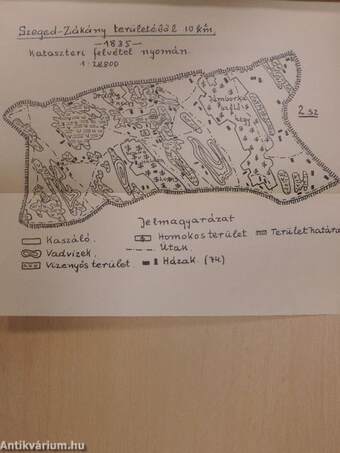 Szeged-Zákány területéből 10 km²
—1835—
Kataszteri felvétel nyomán.
1:28800
2 sz
Jelmagyarázat
Kaszáló.
Homokos terület
Terület határa
Vadvizek.
Utak.
Vizenyős terület.
Házak. (74.)
Antikvárium.hu